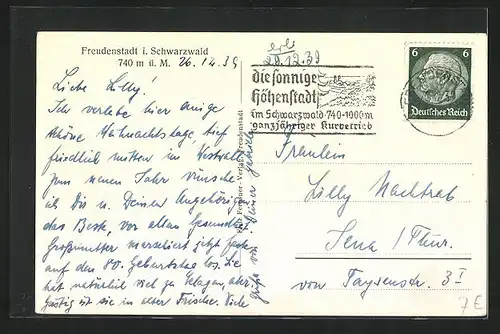 Freudenstadt i. Schwarzwald
740 m ü. M. 26.12.39
erh.
28.12.39
die sonnige
Höhenstadt
im Schwarzwald 740-1000m
ganzjähriger Kurbetrieb
6 6
Deutsches Reich
Liebe Lilly!
Ich verlebe hier einige
schöne Weihnachtstage, tief
friedlich mitten im
Zum neuen Jahr wünsche
ich Dir u. Deinen Angehörigen
das Beste, vor allem Gesundheit.
Großmutter marschiert jetzt
auf den 80. Geburtstag los. Sie
hat natürlich viel zu klagen, aber
geistig ist sie in alter Frische. Viele
Grüße von Deiner
Fräulein
Lilly Nachtrab
Jena / Thür.
von Taysenstr. 3 I
7E